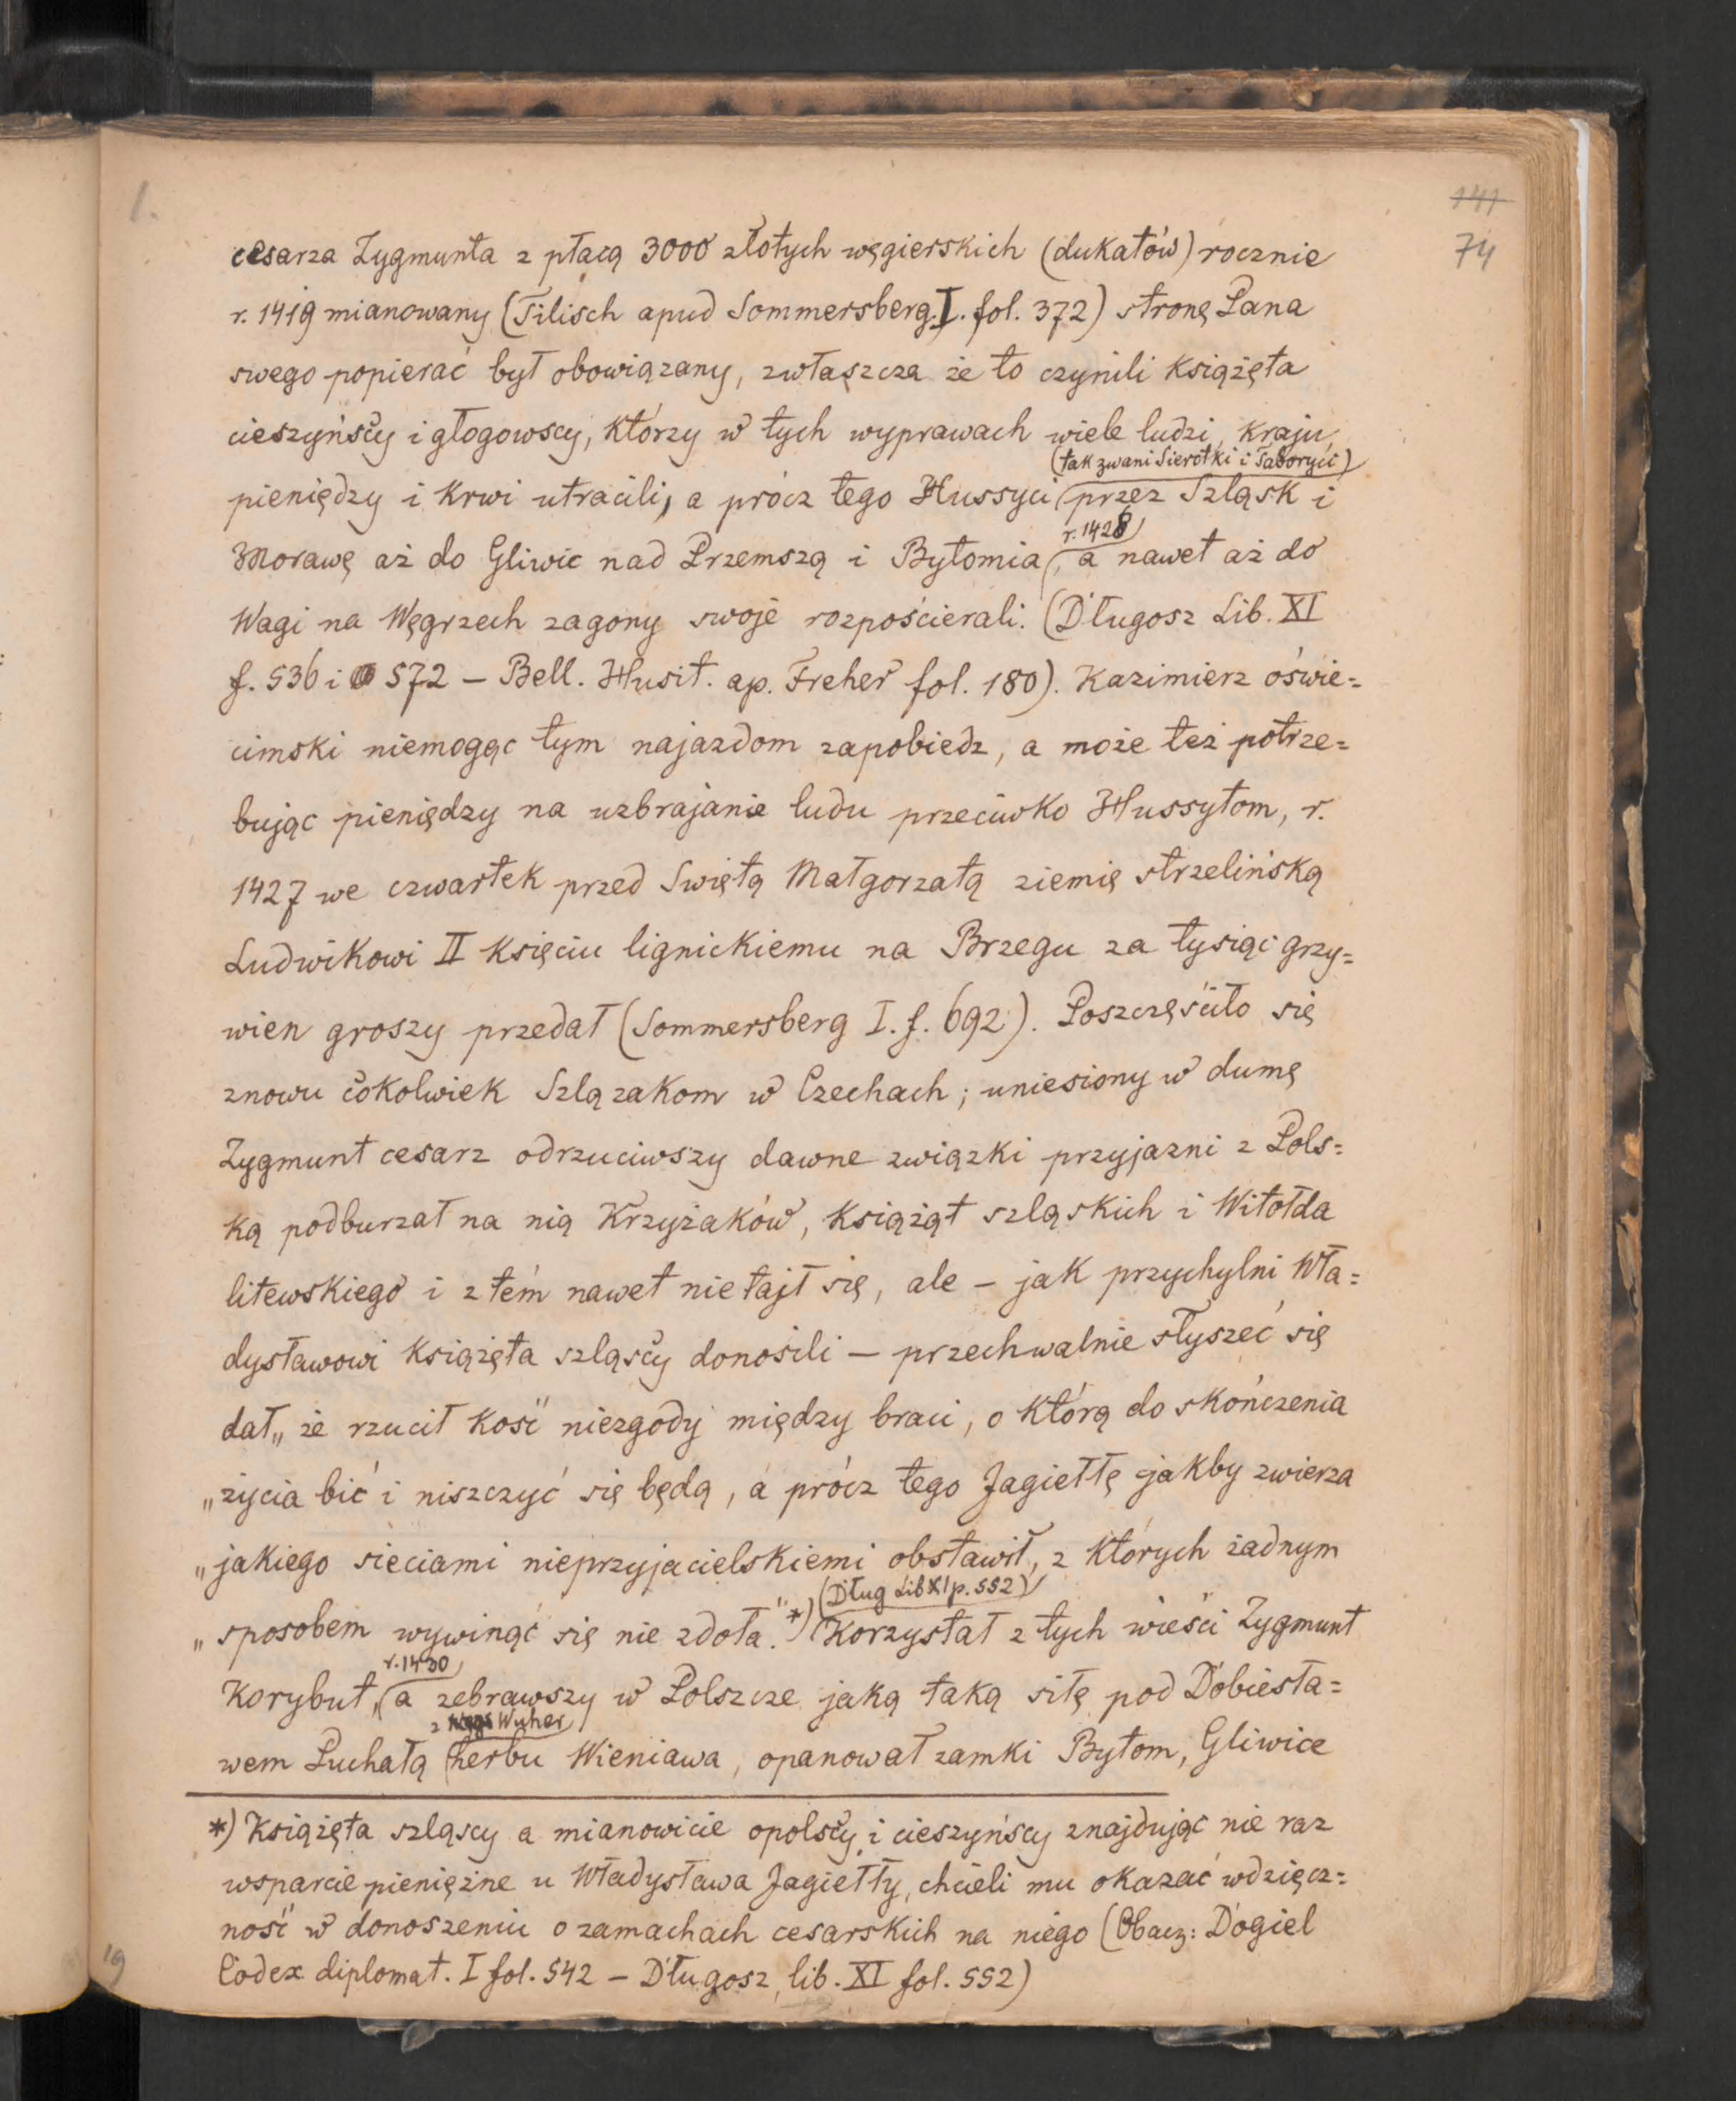 1.
141
74
cesarza Zygmunta z płacą 3000 złotych węgierskich (dukatów) rocznie
r. 1419 mianowany (Tilisch apud Sommersberg. I. fol. 372) stronę Pana
swego popierać był obowiązany, zwłaszcza że to czynili Książęta
cieszyńscy i głogowscy, którzy w tych wyprawach wiele ludzi, kraju,
(tak zwani Sierotki i Taboryci)
pieniędzy i krwi utracili, a prócz tego Hussyci przez Szląsk i
r. 1428
Morawę aż do Gliwic nad Przemszą i Bytomia, a nawet aż do
Wagi na Węgrzech zagony swoje rozpościerali. (Długosz Lib. XI
f. 536 i 572 – Bell. Husit. ap. Freher fol. 180). Kazimierz oświe=
cimski niemogąc tym najazdom zapobiedz, a może też potrze=
bując pieniędzy na uzbrajanie ludu przeciwko Hussytom, r.
1427 we czwartek przed Swiętą Małgorzatą ziemię strzelińską
Ludwikowi II Księciu lignickiemu na Brzegu za tysiąc grzy=
wien groszy przedał (Sommersberg I. f. 692). Poszczęściło się
znowu cokolwiek Szlązakom w Czechach; uniesiony w dumę
Zygmunt cesarz odrzuciwszy dawne związki przyjazni z Pols=
ką podburzał na nią Krzyżaków, Książąt szląskich i Witołda
litewskiego i z tém nawet nie taił się, ale – jak przychylni Wła=
dysławowi Książęta szląscy donosili – przechwalnie słyszeć się
dał „że rzucił kość niezgody między braci, o którą do skończenia
„życia bić i niszczyć się będą, a prócz tego Jagiełłę jakby zwierza
„jakiego sieciami nieprzyjacielskiemi obstawił, z których żadnym
(Dług Lib XI p. 552)
„sposobem wywinąć się nie zdoła." *) Korzystał z tych wieści Zygmunt
r. 1430
Korybut, a zebrawszy w Polszcze jaką taką siłę pod Dobiesła=
z Wuher
wem Puchałą herbu Wieniawa, opanował zamki Bytom, Gliwice
*) Książęta szląscy a mianowicie opolscy i cieszyńscy znajdując nie raz
wsparcie pieniężne u Władysława Jagiełły, chcieli mu okazać wdzięcz=
ność w donoszeniu o zamachach cesarskich na niego (Obacz: Dogiel
Codex diplomat. I fol. 542 – Długosz, lib. XI fol. 552)
19